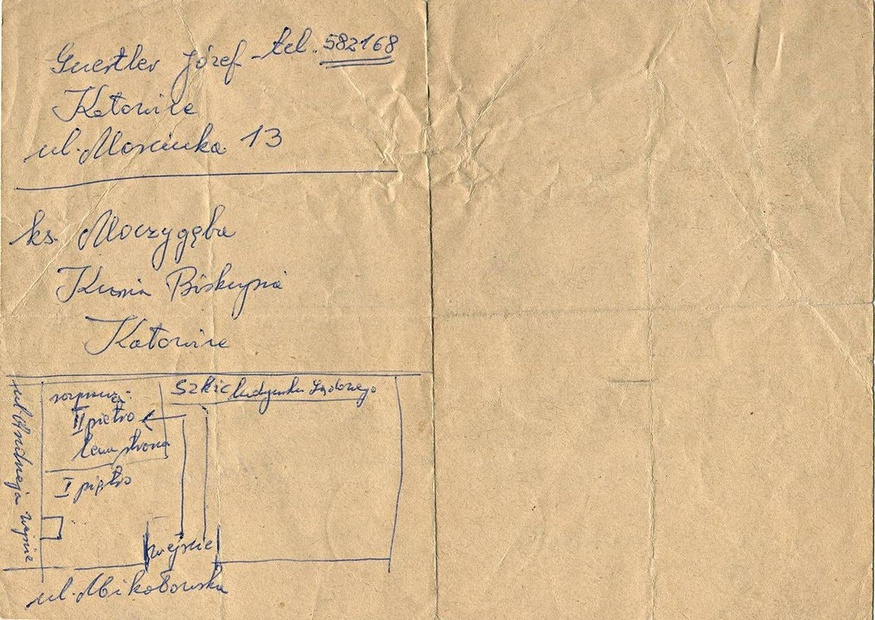 Guertler Józef - tel. 582168
Katowice
ul. Morcinka 13
ks. Moczygęba
Kuria Biskupia
Katowice
Szkic budynku sądowego
rozprawa:
II piętro
lewa strona
I piętro
wejście
ul. Andrzeja
ul. Mikołowska